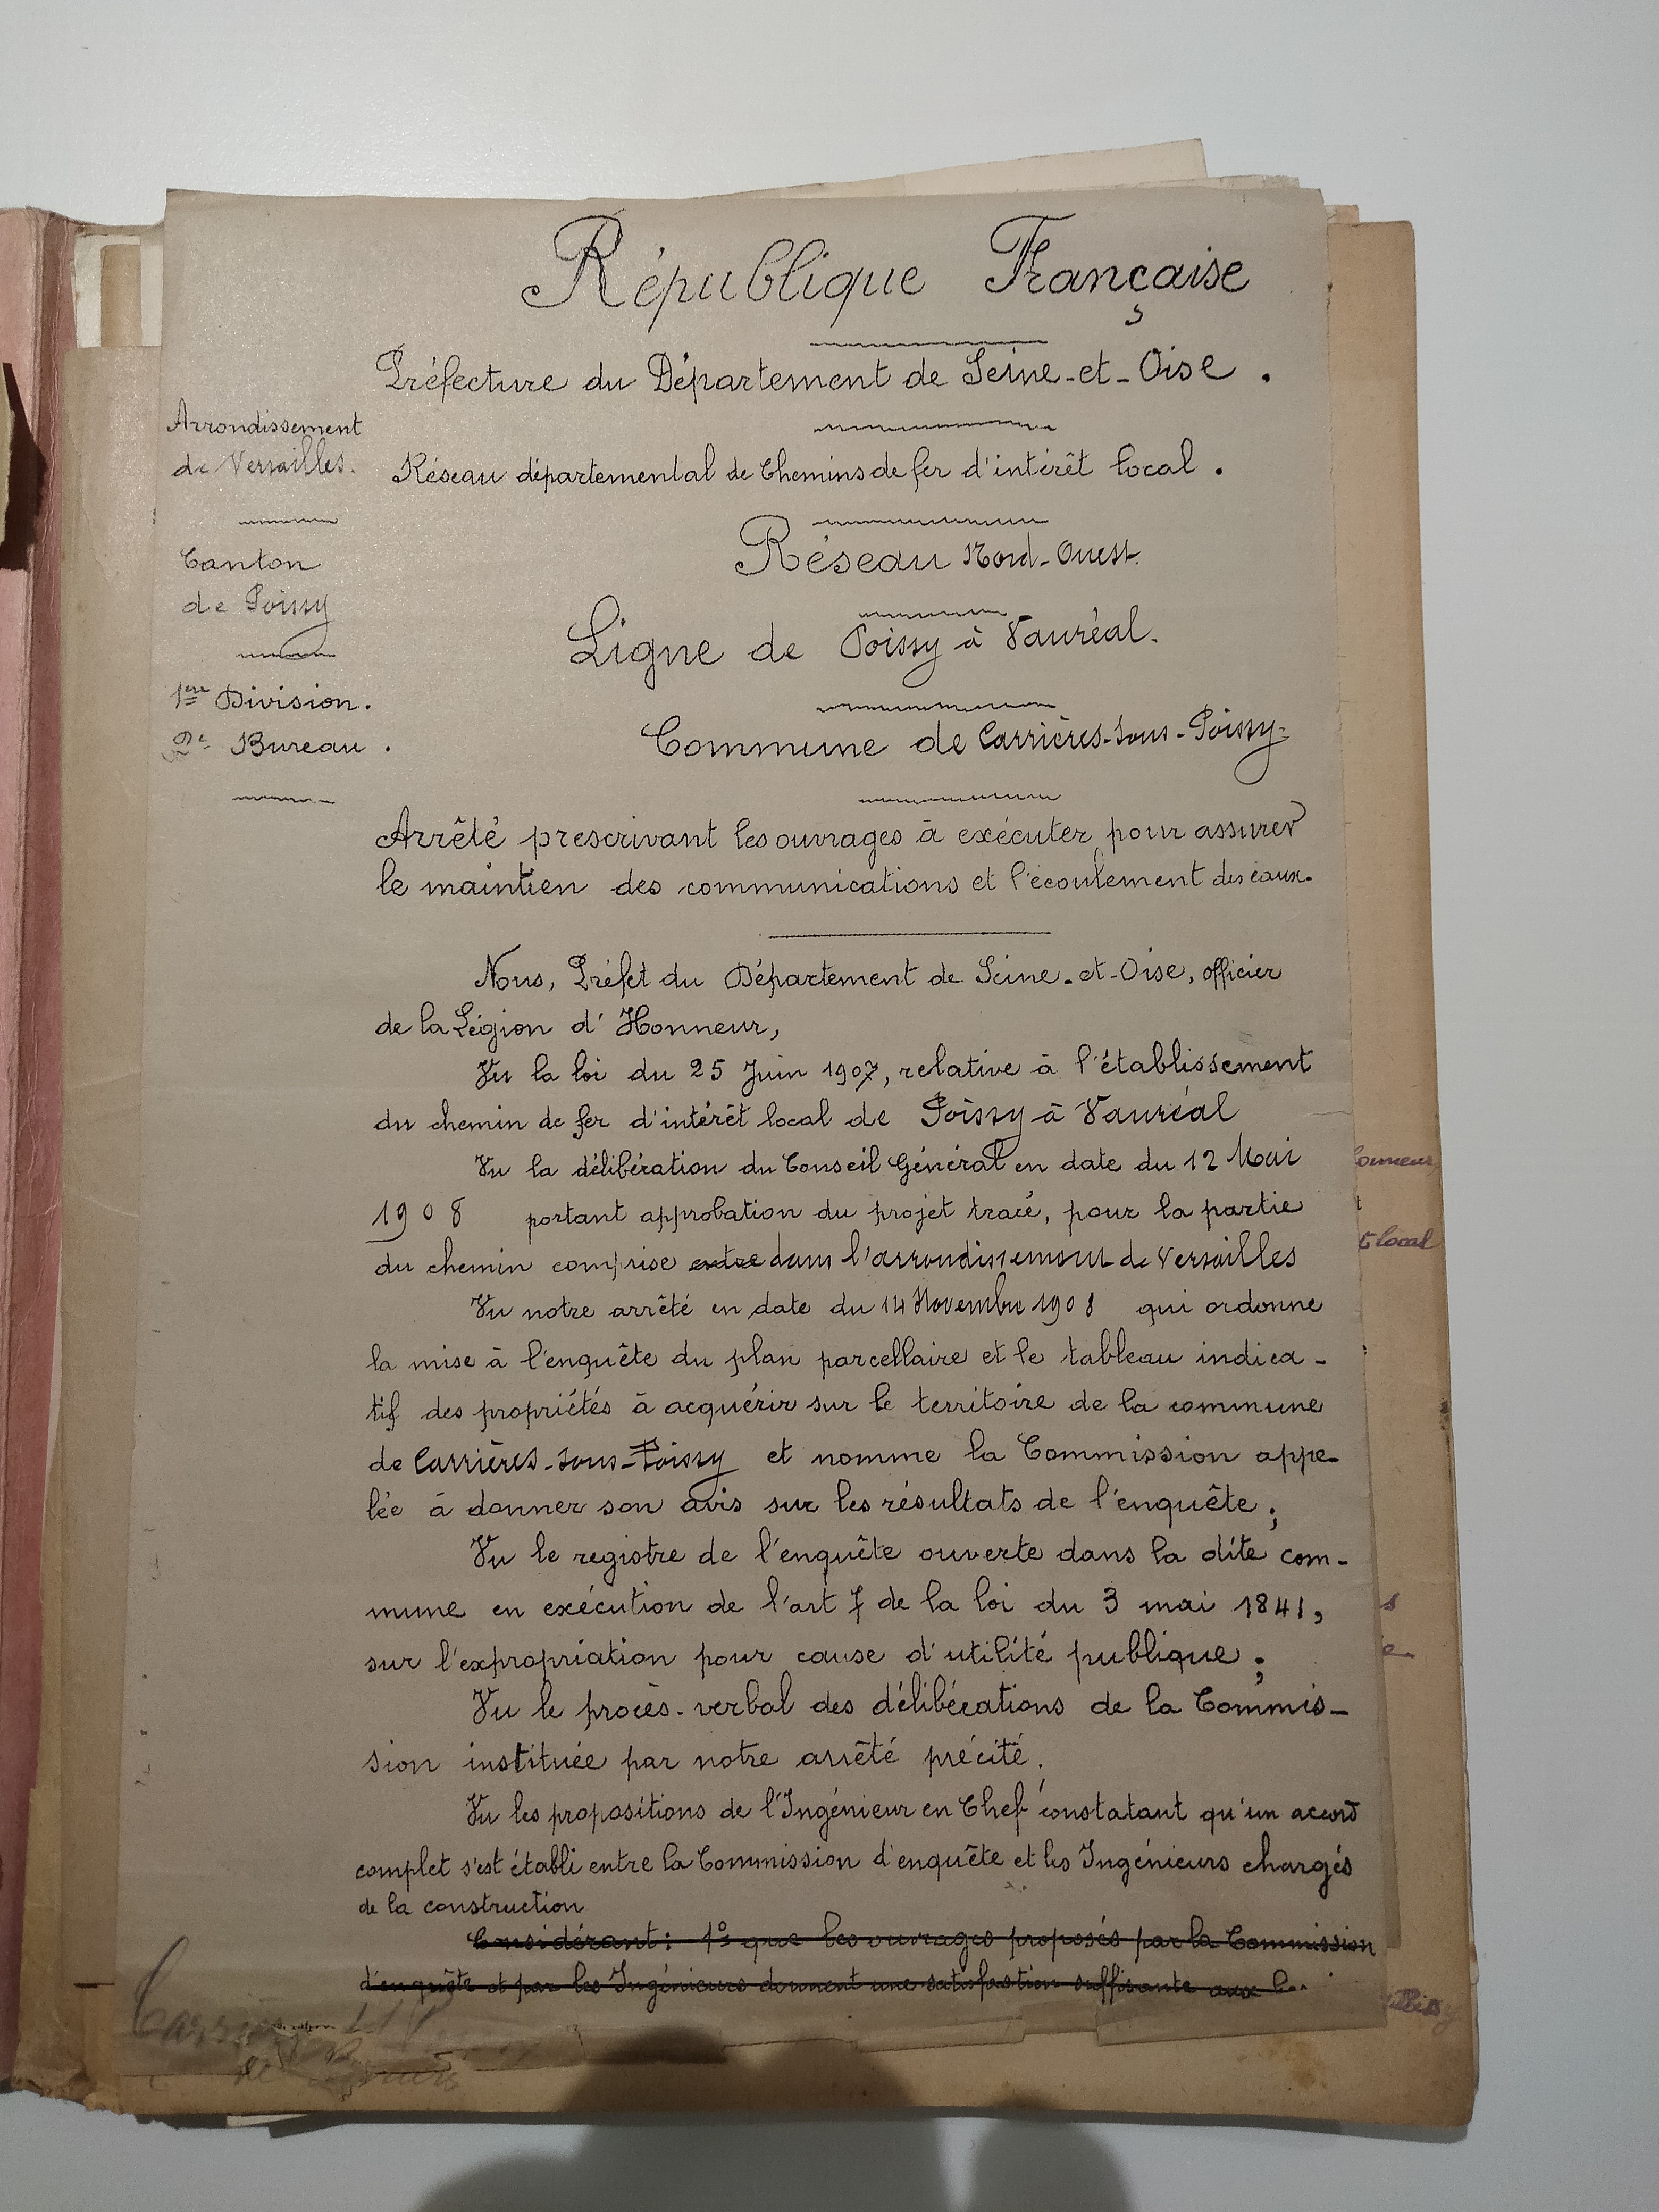 République Française
Préfecture du Département de Seine-et-Oise.
Arrondissement
de Versailles.
Réseau départemental de Chemins de fer d'intérêt local.
Réseau Nord-Ouest.
Canton
de Poissy
Ligne de Poissy à Vauréal.
1ère Division.
2e Bureau.
Commune de Carrières-sous-Poissy.
Arrêté prescrivant les ouvrages à exécuter pour assurer
le maintien des communications et l'écoulement des eaux.
Nous, Préfet du Département de Seine-et-Oise, officier
de la Légion d'Honneur,
Vu la loi du 25 Juin 1907, relative à l'établissement
du chemin de fer d'intérêt local de Poissy à Vauréal
Vu la délibération du Conseil Général en date du 12 Mai
1908 portant approbation du projet tracé, pour la partie
du chemin comprise entre dans l'arrondissement de Versailles
Vu notre arrêté en date du 14 Novembre 1908 qui ordonne
la mise à l'enquête du plan parcellaire et le tableau indica-
tif des propriétés à acquérir sur le territoire de la commune
de Carrières-sous-Poissy et nomme la Commission appe-
lée à donner son avis sur les résultats de l'enquête;
Vu le registre de l'enquête ouverte dans la dite com-
mune en exécution de l'art 7 de la loi du 3 mai 1841,
sur l'expropriation pour cause d'utilité publique;
Vu le procès-verbal des délibérations de la Commis-
sion instituée par notre arrêté précité.
Vu les propositions de l'Ingénieur en Chef constatant qu'un accord
complet s'est établi entre la Commission d'enquête et les Ingénieurs chargés
de la construction
Considérant: 1° que les ouvrages proposés par la Commission
d'enquête et par les Ingénieurs donnent une satisfaction suffisante aux
t local